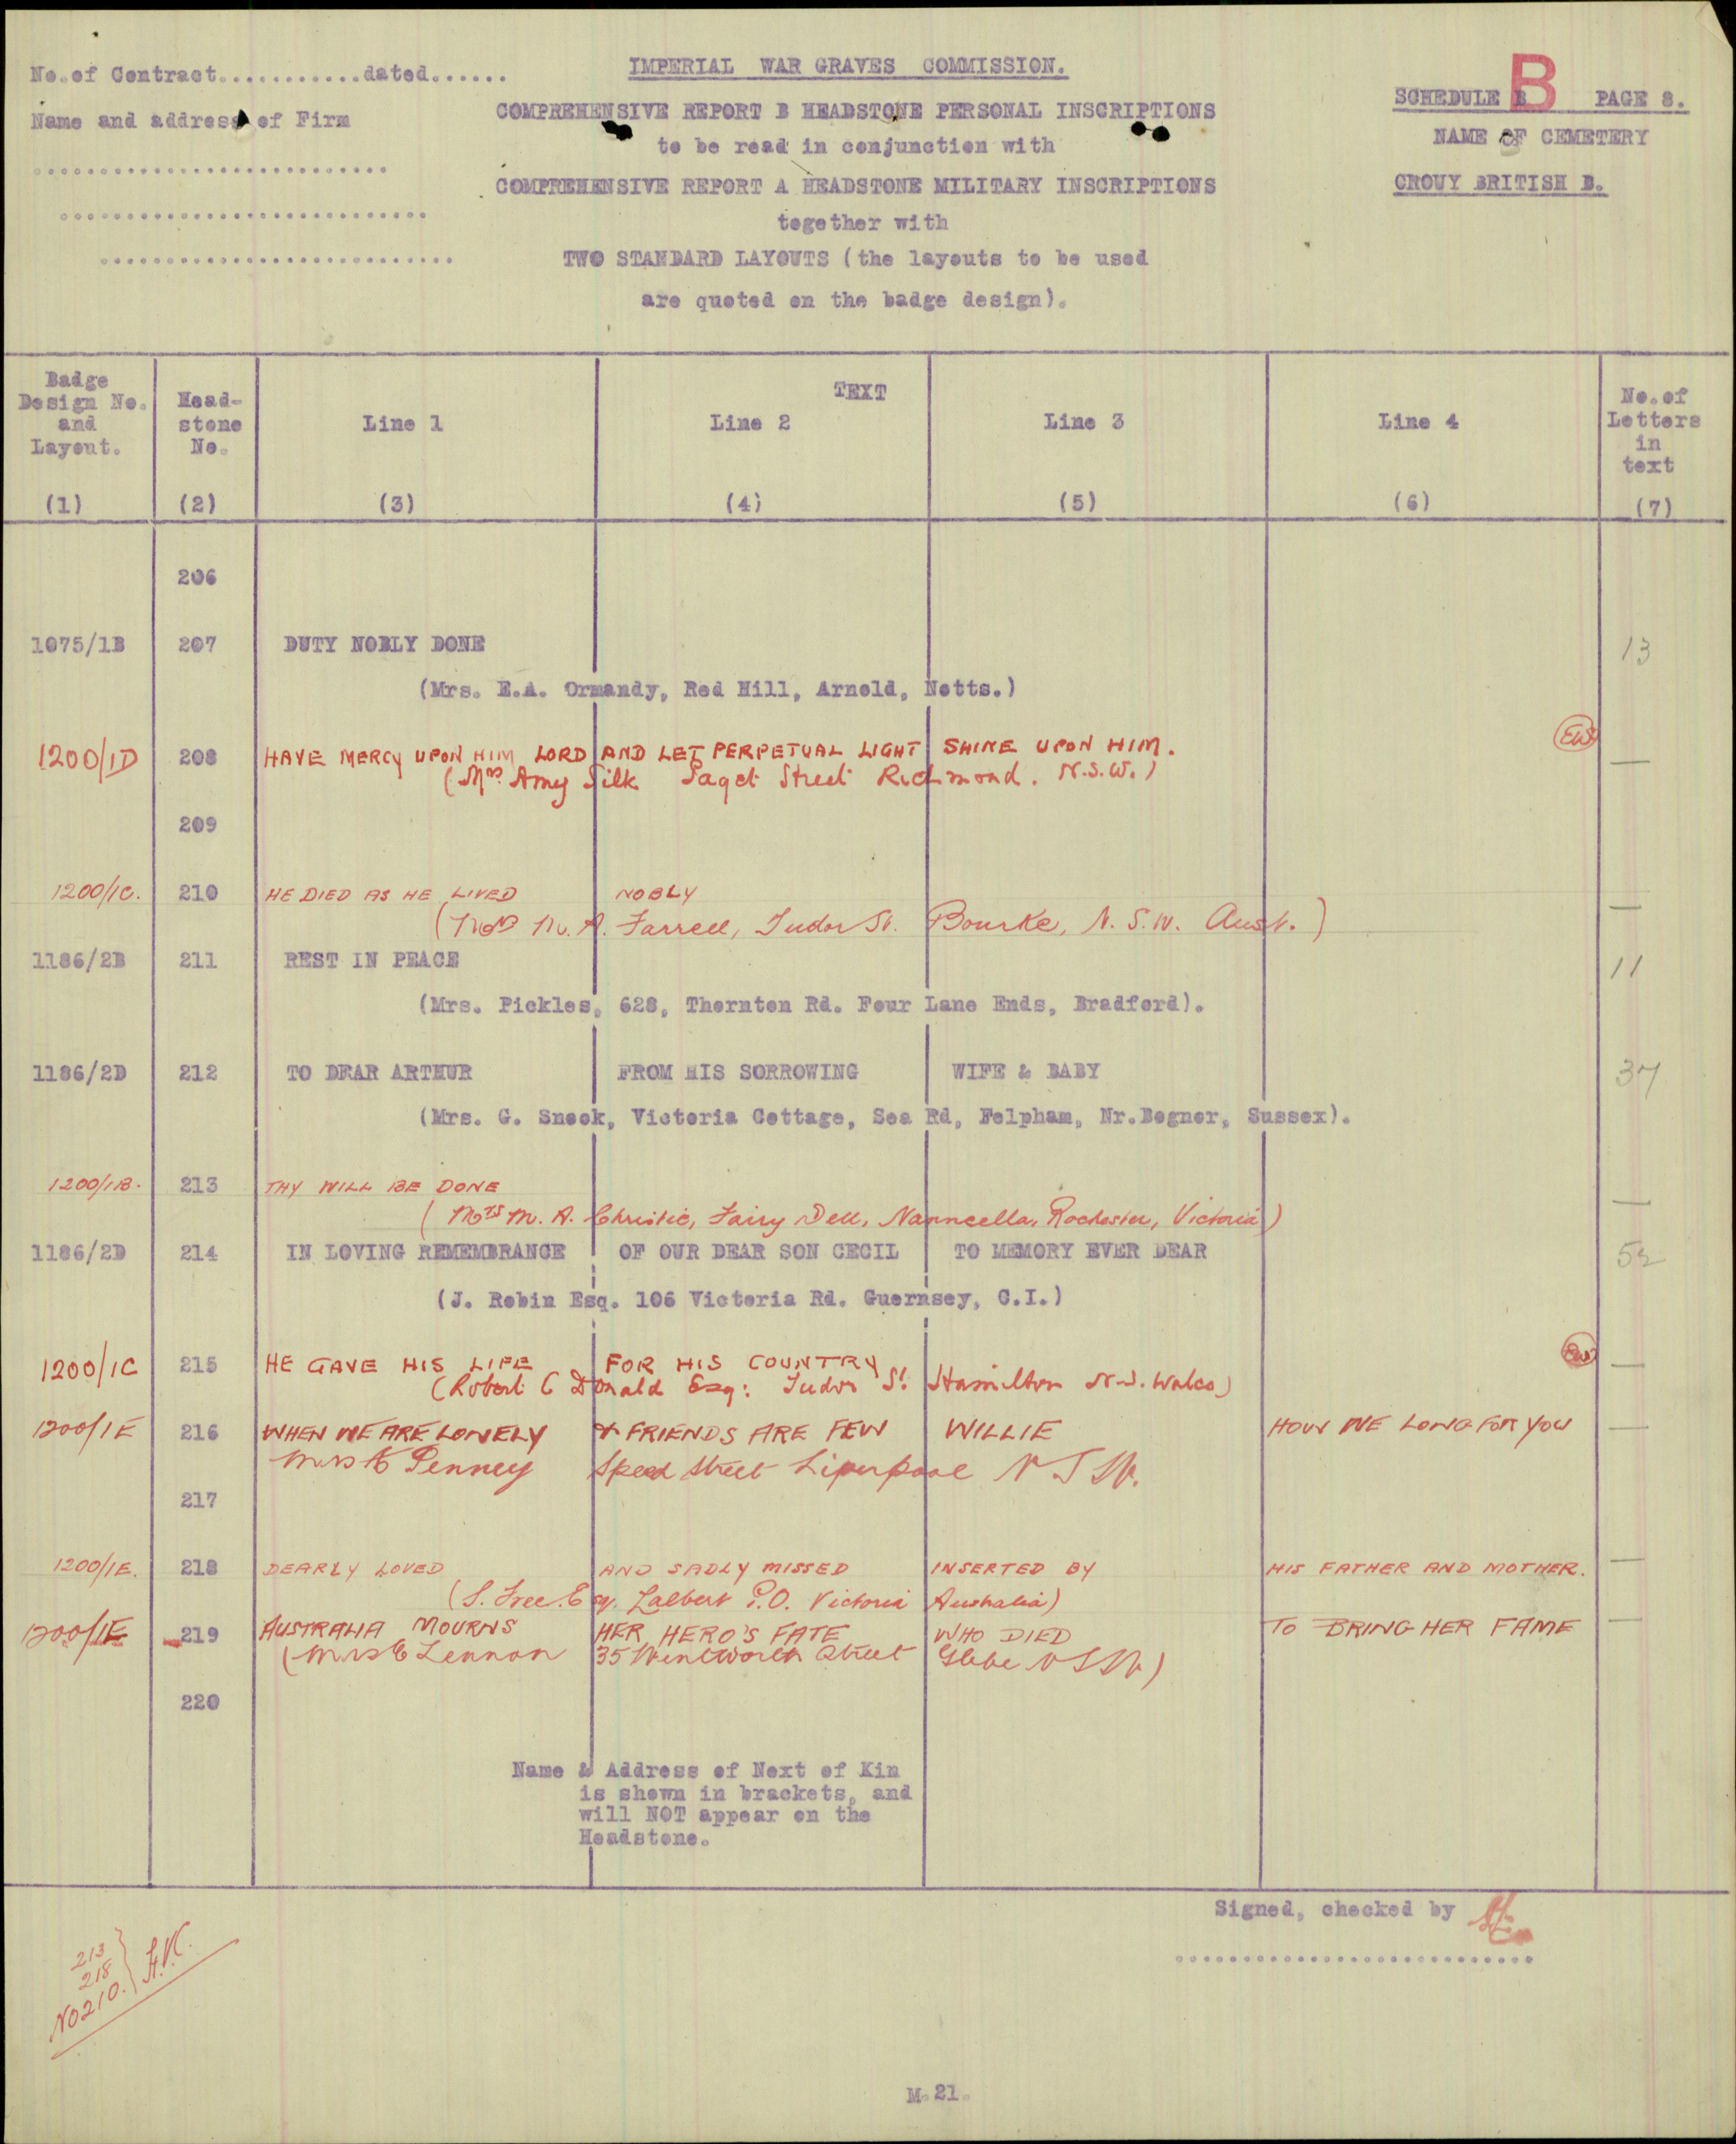 No. of Contract............dated......
Name and address of Firm
IMPERIAL WAR GRAVES COMMISSION.
COMPREHENSIVE REPORT B HEADSTONE PERSONAL INSCRIPTIONS
to be read in conjunction with
COMPREHENSIVE REPORT A HEADSTONE MILITARY INSCRIPTIONS
together with
TWO STANDARD LAYOUTS (the layouts to be used
are quoted on the badge design).
B
SCHEDULE B PAGE 8.
NAME OF CEMETERY
CROUY BRITISH B.
Badge Design No. and Layout. Head-stone No. TEXT No. of Letters in text
Line 1 Line 2 Line 3 Line 4
(1) (2) (3) (4) (5) (6) (7)
206
1075/1B 207 DUTY NOBLY DONE 13
(Mrs. E.A. Ormandy, Red Hill, Arnold, Notts.)
1200/1D 208 HAVE MERCY UPON HIM LORD AND LET PERPETUAL LIGHT SHINE UPON HIM. EW —
(Mrs. Amy Silk Paget Street Richmond. N.S.W.)
209
1200/1C. 210 HE DIED AS HE LIVED NOBLY —
(Mrs M. A. Farrell, Tudor St. Bourke, N.S.W. Aust.)
1186/2B 211 REST IN PEACE 11
(Mrs. Pickles, 628, Thornton Rd. Four Lane Ends, Bradford).
1186/2D 212 TO DEAR ARTHUR FROM HIS SORROWING WIFE & BABY 37
(Mrs. G. Snook, Victoria Cottage, Sea Rd, Felpham, Nr.Bognor, Sussex).
1200/1B. 213 THY WILL BE DONE —
(Mrs M. A. Christie, Fairy Dell, Nanneella, Rochester, Victoria)
1186/2D 214 IN LOVING REMEMBRANCE OF OUR DEAR SON CECIL TO MEMORY EVER DEAR 52
(J. Robin Esq. 106 Victoria Rd. Guernsey, C.I.)
1200/1C 215 HE GAVE HIS LIFE FOR HIS COUNTRY EW —
(Robert C Donald Esq: Tudor St Hamilton N.S. Wales)
1200/1E 216 WHEN WE ARE LONELY & FRIENDS ARE FEW WILLIE HOW WE LONG FOR YOU —
Mrs A Penney Speed Street Liverpool N S W.
217
1200/1E. 218 DEARLY LOVED AND SADLY MISSED INSERTED BY HIS FATHER AND MOTHER. —
(S. Free. Esq. Lalbert P.O. Victoria Australia)
1200/1E 219 AUSTRALIA MOURNS HER HERO'S FATE WHO DIED TO BRING HER FAME —
(Mrs E Lennon 35 Wentworth Street Glebe N S W)
220
Name & Address of Next of Kin
is shown in brackets, and
will NOT appear on the
Headstone.
Signed, checked by
213
218
No 210.
M.21.